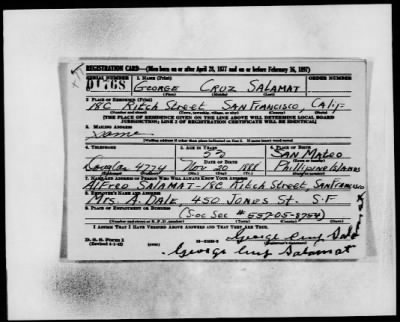 REGISTRATION CARD—(Men born on or after April 28, 1877 and on or before February 16, 1897)
SERIAL NUMBER 1. NAME (Print) ORDER NUMBER
U1768 GEORGE CRUZ SALAMAT
(First) (Middle) (Last)
2. PLACE OF RESIDENCE (Print)
18C RITCH STREET SAN FRANCISCO, CALIF-
(Number and street) (Town, township, village, or city) (County) (State)
[THE PLACE OF RESIDENCE GIVEN ON THE LINE ABOVE WILL DETERMINE LOCAL BOARD
JURISDICTION; LINE 2 OF REGISTRATION CERTIFICATE WILL BE IDENTICAL]
3. MAILING ADDRESS
Same
[Mailing address if other than place indicated on line 2. If same insert word same]
4. TELEPHONE 5. AGE IN YEARS 6. PLACE OF BIRTH
53 SAN MATEO
DATE OF BIRTH
DOUGLAS 4774 NOV 20 1888 PHILLIPINE ISLANDS
(Exchange) (Number) (Mo.) (Day) (Yr.) (State or country)
7. NAME AND ADDRESS OF PERSON WHO WILL ALWAYS KNOW YOUR ADDRESS
ALFRED SALAMAT-18C RITCH STREET, SAN FRANCISCO
8. EMPLOYER'S NAME AND ADDRESS
MRS. A. DALE, 450 JONES ST. S.F
9. PLACE OF EMPLOYMENT OR BUSINESS
(SOC SEC # 557-05-8754)
(Number and street or R. F. D. number) (Town) (County) (State)
I AFFIRM THAT I HAVE VERIFIED ABOVE ANSWERS AND THAT THEY ARE TRUE.
D. S. S. Form 1
(Revised 4-1-42)
George Cruz Salamat
George Cruz Salamat